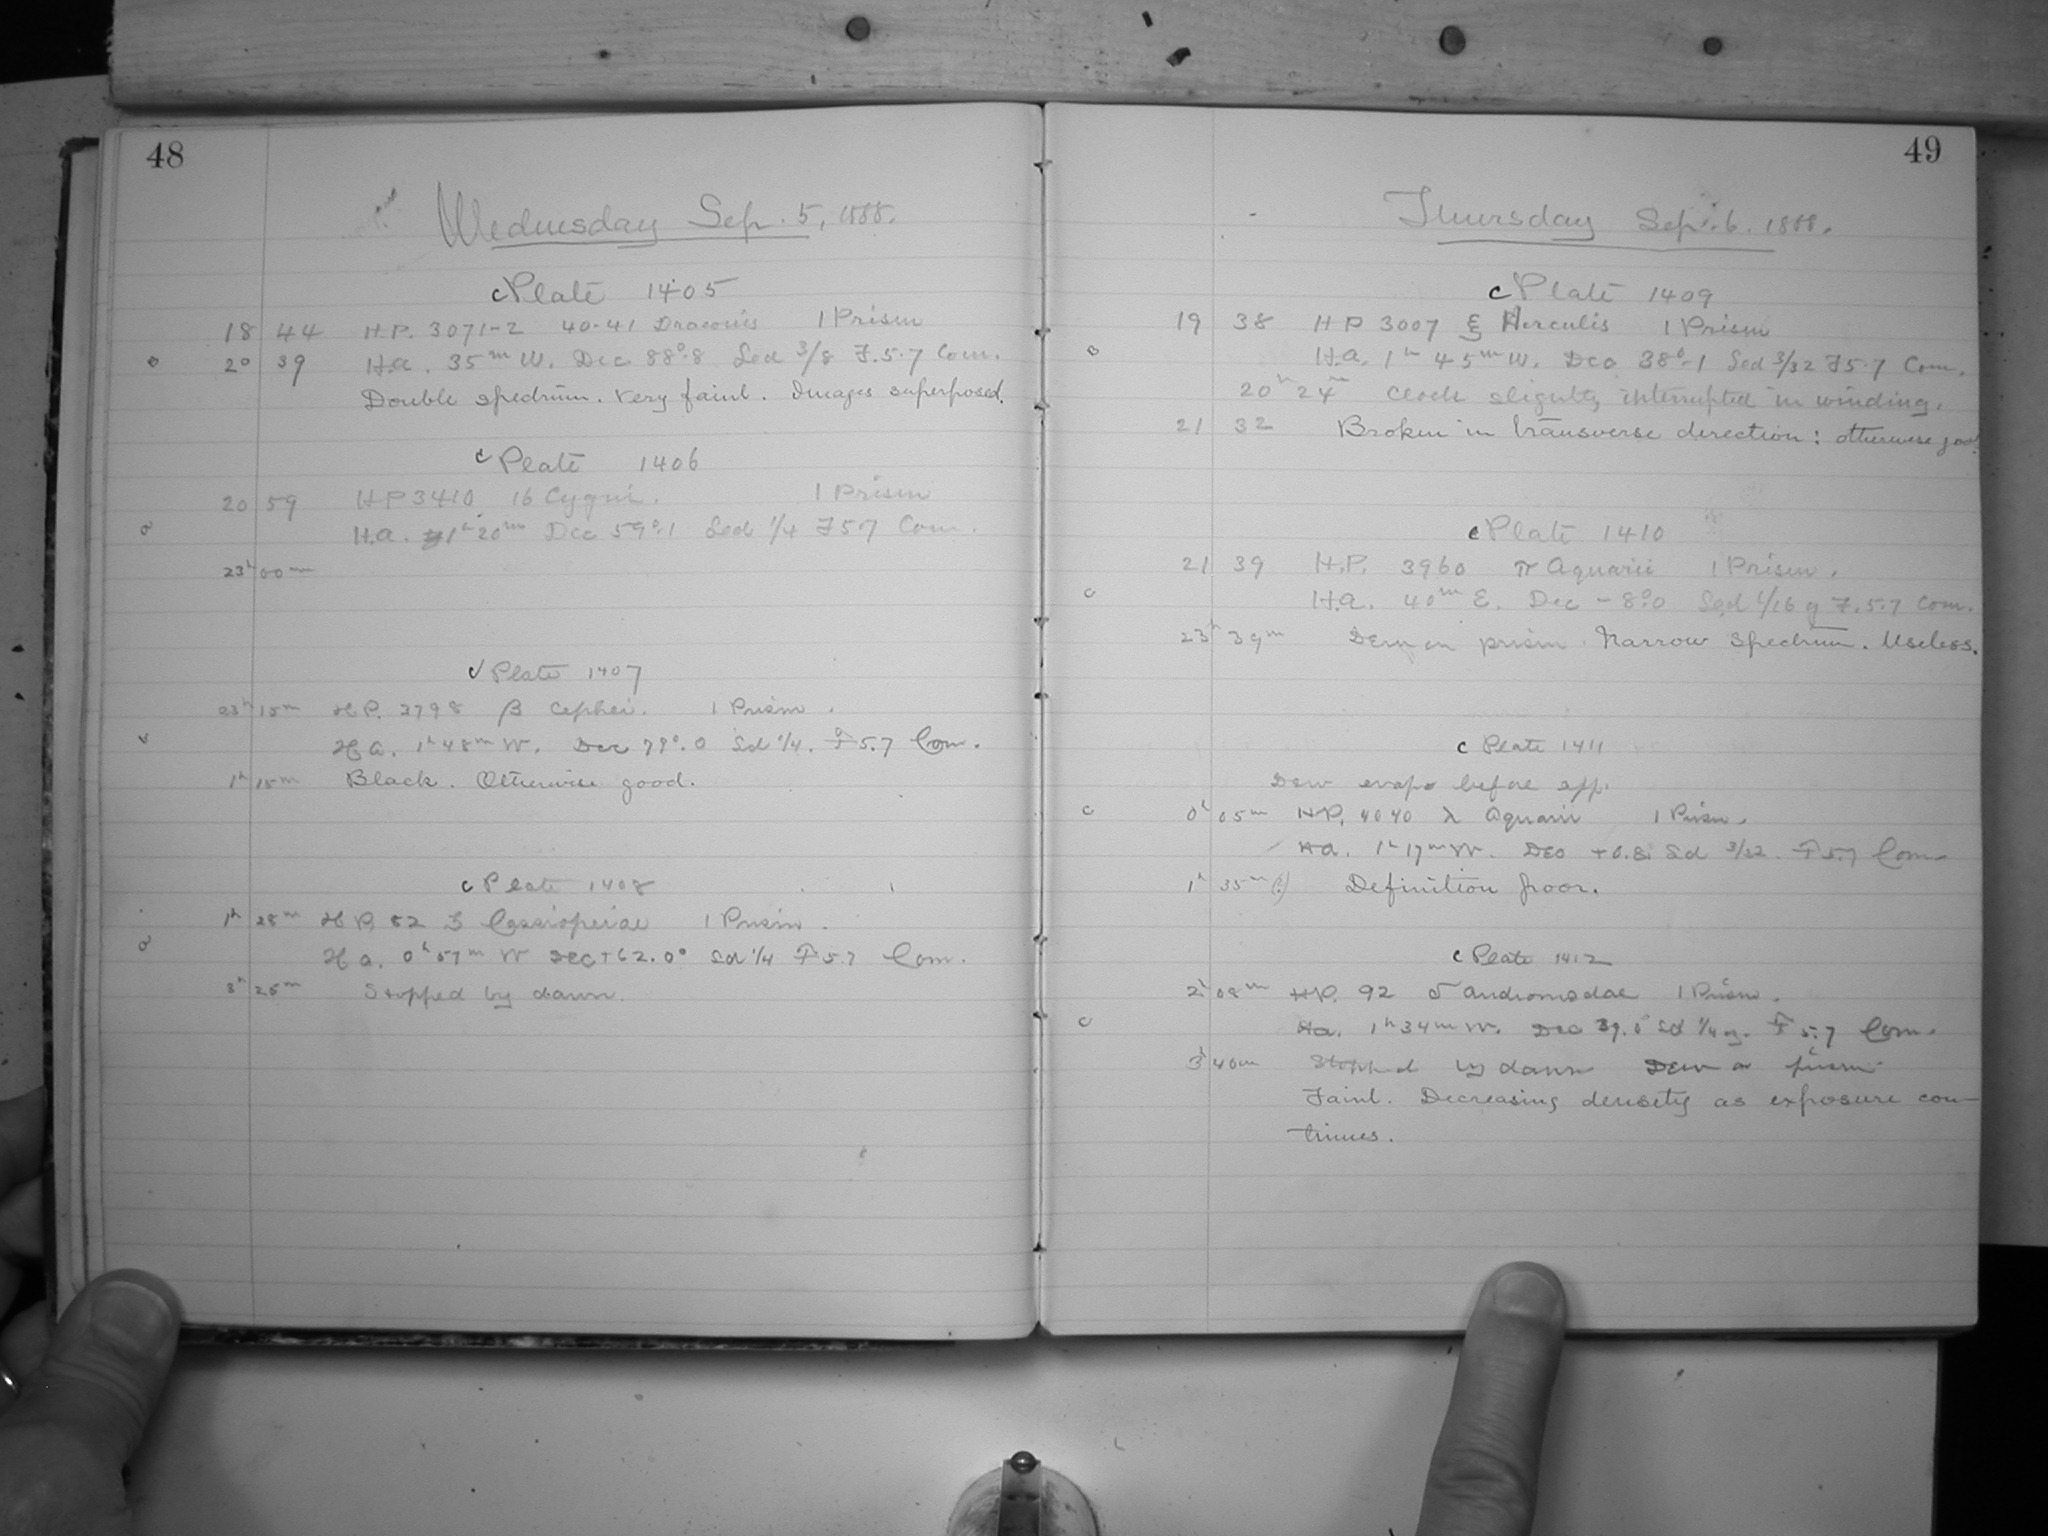 48
Wednesday Sep. 5, 1888.
c Plate 1405
18 44 H.P. 3071-2 40-41 Draconis 1 Prism
20 39 H.a. 35m W. Dec 88°.8 Sed 3/8 F.5.7 Com.
Double spectrum. Very faint. Images superposed.
c Plate 1406
20 59 H P 3410 16 Cygni. 1 Prism
H.a. 1h 20m Dec 59°.1 Sed 1/4 F 5.7 Com.
23h 00m
c Plate 1407
23h 15m H P. 3798 β Cephei. 1 Prism.
H a. 1h 48m W. Dec 79°.0 Sd 1/4. F 5.7 Com.
1h 15m Black. Otherwise good.
c Plate 1408
1h 28m H P. 82 Cassiopeiae 1 Prism.
H a. 0h 57m W Dec +62.0° Sd 1/4 F 5.7 Com.
3h 25m Stopped by dawn.
49
Thursday Sep. 6. 1888.
c Plate 1409
19 38 H P 3007 ξ Herculis 1 Prism
H.a. 1h 45m W. Dec 38°.1 Sed 3/32 F5.7 Com.
20h 24m Clock slightly interrupted in winding.
21 32 Broken in transverse direction: otherwise good.
c Plate 1410
21 39 H.P. 3960 π Aquarii 1 Prism.
H.a. 40m E. Dec -8°.0 Sed 1/16 g F.5.7 Com.
23h 39m Dew on prism. Narrow spectrum. Useless.
c Plate 1411
Dew evapo before app.
0h 05m H P. 4040 λ Aquarii 1 Prism.
H a. 1h 17m W. Dec +0.8 Sd 3/32. F 5.7 Com
1h 35m (?) Definition poor.
c Plate 1412
2h 08m H P. 92 δ Andromedae 1 Prism.
H a. 1h 34m W. Dec 39.0° Sd 1/4 g. F 5.7 Com.
3h 40m Stopped by dawn Dew on prism
Faint. Decreasing density as exposure con-
tinues.